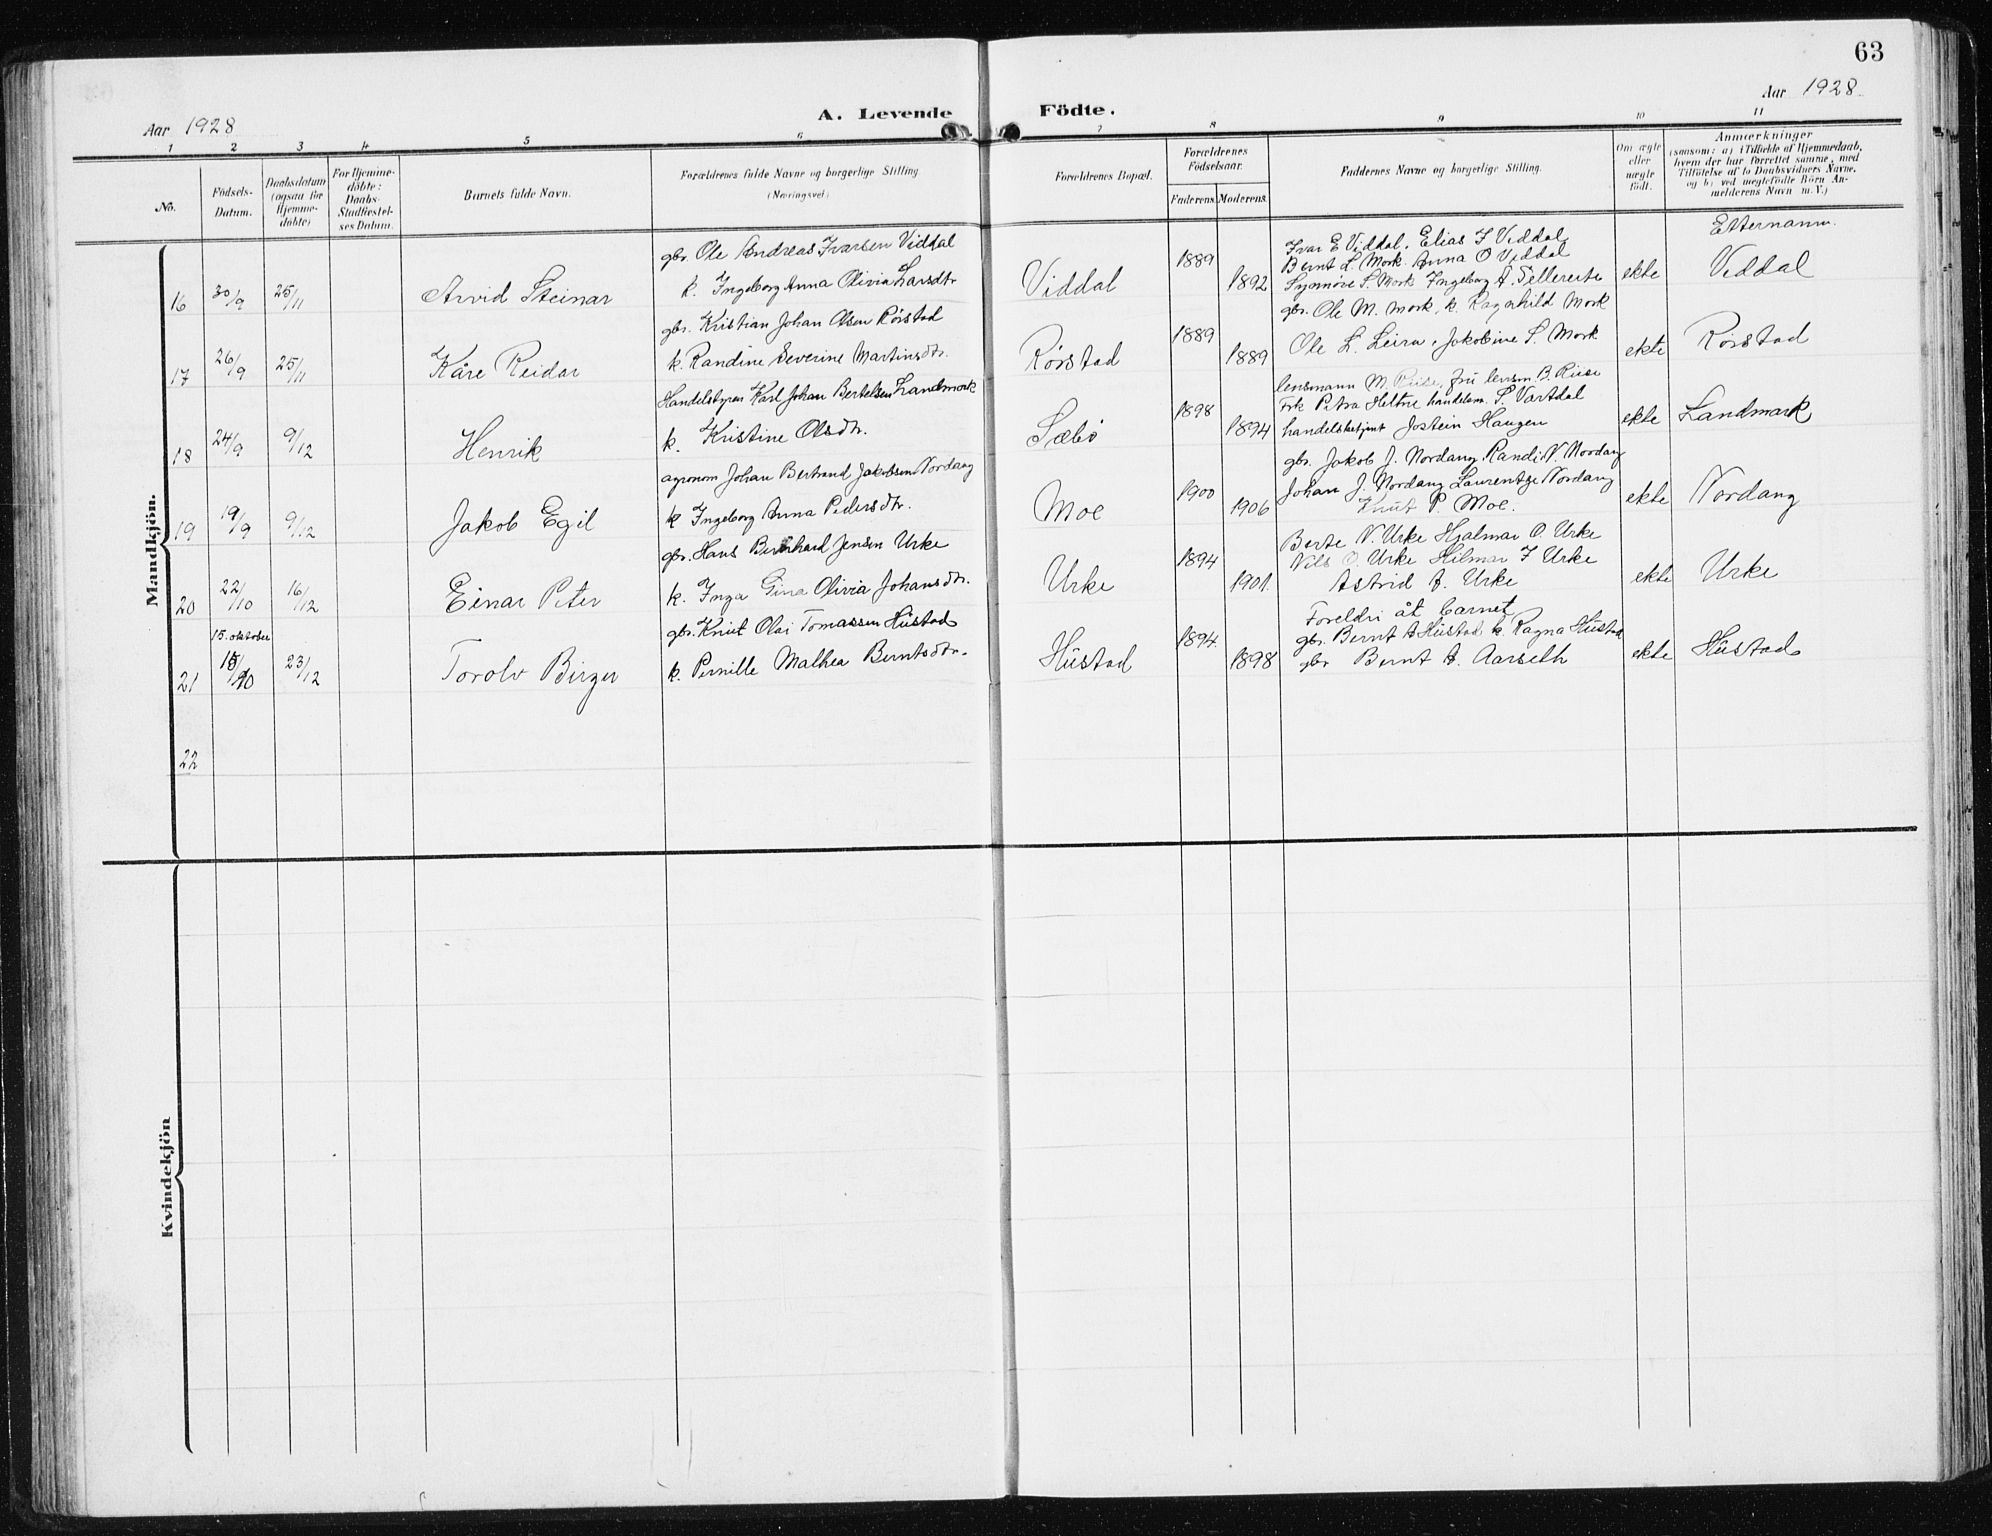 63
Aar 1928
A. Levende
Födte.
Aar 1928
1 2 3 4 5 6 7 8 9 10 11
No.
Födsels-
Datum.
Daabsdatum
(ogsaa for
Hjemme-
döbte)
For Hjemme-
döbte:
Daabs-
Stadfæstel-
ses Datum.
Barnets fulde Navn.
Forældrenes fulde Navne og borgerlige Stilling.
(Næringsvei)
Forældrenes Bopæl.
Forældrenes
Födselsaar.
Faderens. Moderens.
Faddernes Navne og borgerlige Stilling.
Om ægte
eller
uægte
födt.
Anmærkninger
(saasom: a) i Tilfælde af Hjemmedaab,
hvem der har forrettet samme, med
Tilföielse af to Daabsvidners Navne.
og b) ved uægtefödte Börn An-
melderens Navn m. V.)
Etternamn.
Mandkjön.
16 30/9 25/11 Arvid Steinar
gbr. Ole Andreas Ivarsen Viddal
k. Ingeborg Anna Olivia Larsdtr
Viddal 1889 1892
Ivar E Viddal. Elias I Viddal
Bernt L. Mork. Anna O Viddal
Synnöve S. Mork Ingeborg A.
gbr. Ole M. Mork, k. Ragnhild Mork
ekte Viddal
17 26/9 25/11 Kåre Reidar
gbr. Kristian Johan Olsen Rörstad
k. Randine Severine Martinsdtr.
Rörstad 1889 1889
Ole L. Leira, Jakobine S. Mork
ekte Rörstad
18 24/9 9/12 Henrik
Handelstyrer Karl Johan Bertelsen Landmark
k. Kristine Olsdtr.
Sæbö 1898 1894
lensmann M. Riise, fru lensm. B. Riise
Frk Petra Heltne handelsm. S. Vartdal
handelsbetjent Jostein Haugen
ekte Landmark
19 19/9 9/12 Jakob Egil
agronom Johan Bertrand Jakobsen Nordang
k Ingeborg Anna Pedersdtr.
Moe 1900 1906
gbr. Jakob J. Nordang, Randi N. Nordang
Johan J. Nordang Laurentze Nordang
Knut P. Moe.
ekte Nordang
20 22/10 16/12 Einar Peter
gbr. Hans Bernhard Jensen Urke
k. Inga Gina Olivia Johansdtr.
Urke 1894 1901.
Berte N. Urke Hjalmar O. Urke
Nils O. Urke Hilmar I Urke
Astrid A. Urke
ekte Urke
15. oktober
21 15/10 23/12 Torolv Birger
gbr. Knut Olai Tomassen Hustad
k. Pernille Mathea Berntsdtr.
Hustad 1894. 1898
Foreldri åt barnet
gbr. Bernt A Hustad k. Ragna Hustad
gbr Bernt A. Aarseth
ekte Hustad
22
Kvindekjön